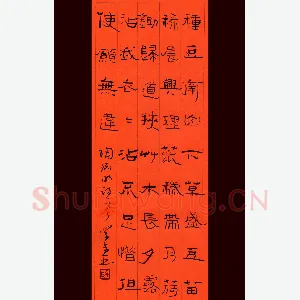 種豆南山下草盛豆苗
稀晨興理荒穢帶月荷
鋤歸道狹艸木長夕露
沾我衣〻沾不足惜但
使願無違
陶淵明詩